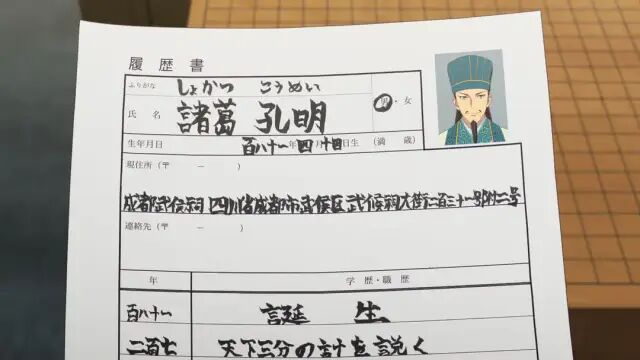 履歴書
ふりがな しょかつ こうめい
氏名 諸葛 孔明 男・女
生年月日 百八十一年四月十四日生 (満 歳)
現住所 (〒 － )
成都武侯祠 四川省成都市武侯区武侯祠大街二百三十一号附二号
連絡先 (〒 － )
年 学歴・職歴
百八十一 誕生
二百七 天下三分の計を説く